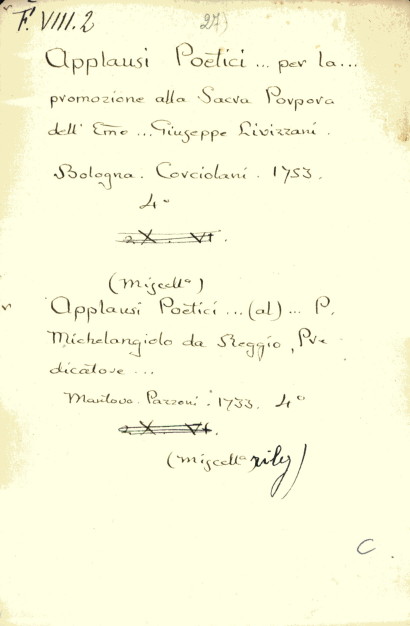 F. VIII. 2
27)
Applausi Poetici ... per la ...
promozione alla Sacra Porpora
dell' Emo ... Giuseppe Livizzani.
Bologna. Corciolani. 1753.
4º
(Miscellª)
Applausi Poetici ... (al) ... P.
Michelangiolo da Reggio, Pre
dicatore ...
Mantova. Pazzoni. 1733. 4º
(Miscellª
C.